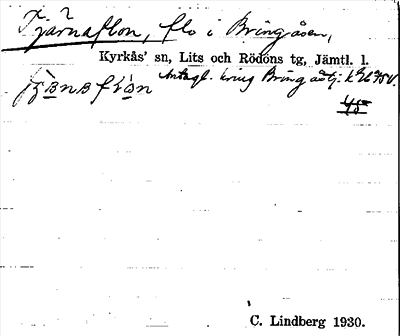 Tjärnaflon, flo i Bringåsen,
Kyrkås' sn, Lits och Rödöns tg, Jämtl. l.
Antagl. kring Bringåstj:
45
C. Lindberg 1930.